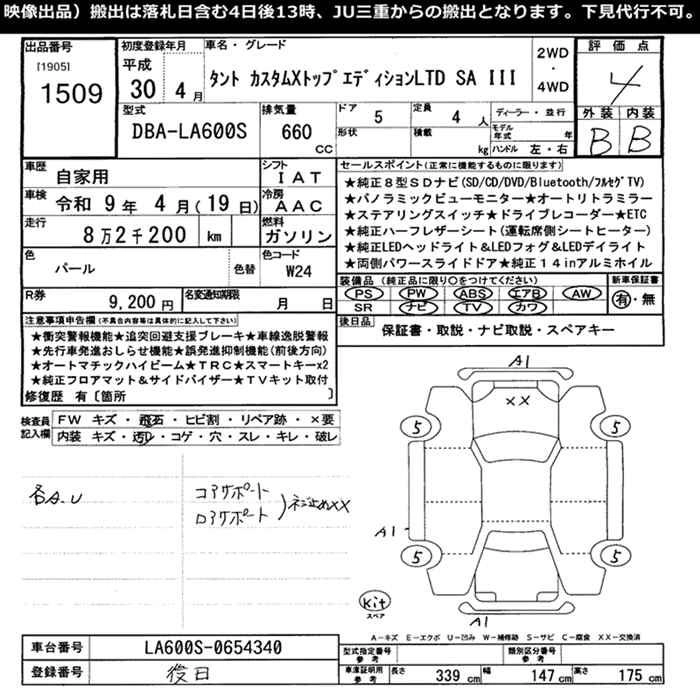 映像出品）搬出は落札日含む4日後13時、JU三重からの搬出となります。下見代行不可。
出品番号
[1905]
1509
初度登録年月
平成
30年 4月
車名・グレード
タント カスタムXトップエディションLTD SA III
2WD
・
4WD
評価点
4
外装 内装
B B
型式
DBA-LA600S
排気量
660 CC
ドア 5
形状
定員 4 人
積載 kg
ディーラー・並行
モデル年式 年
ハンドル 左・右
車歴
自家用
シフト
IAT
車検
令和 9年 4月(19日)
冷房
AAC
走行
8万2千200 km
燃料
ガソリン
色
パール
色替
色コード
W24
R券
9,200円
名変通知期限
月 日
セールスポイント(正常に機能するものに限ります)
★純正8型SDナビ(SD/CD/DVD/Bluetooth/フルセグTV)
★パノラミックビューモニター★オートリトラミラー
★ステアリングスイッチ★ドライブレコーダー★ETC
★純正ハーフレザーシート(運転席側シートヒーター)
★純正LEDヘッドライト&LEDフォグ&LEDデイライト
★両側パワースライドドア★純正14inアルミホイル
装備品 (純正品に限り○をつけてください)
PS PW ABS エアB AW
SR ナビ TV カワ
新車保証書
有・無
後日品
保証書・取説・ナビ取説・スペアキー
注意事項申告欄(不具合内容等は具体的に記入して下さい)
★衝突警報機能★追突回避支援ブレーキ★車線逸脱警報
★先行車発進おしらせ機能★誤発進抑制機能(前後方向)
★オートマチックハイビーム★TRC★スマートキーx2
★純正フロアマット&サイドバイザー★TVキット取付
修復歴 有〔箇所 〕
検査員記入欄
FW キズ・飛石・ヒビ割・リペア跡・×要
内装 キズ・汚レ・コゲ・穴・スレ・キレ・破レ
各A.U
コアサポート
ロアサポート
ネジ止めXX
A1
XX
5
5
A1
5
5
Kit
スペア
A1
A－キズ E－エクボ U－凹み W－補修跡 S－サビ C－腐食 XX－交換済
車台番号
LA600S-0654340
登録番号
後日
型式指定番号
参考
類別区分番号
参考
車庫証明用
参考
長さ 339 cm
幅 147 cm
高さ 175 cm